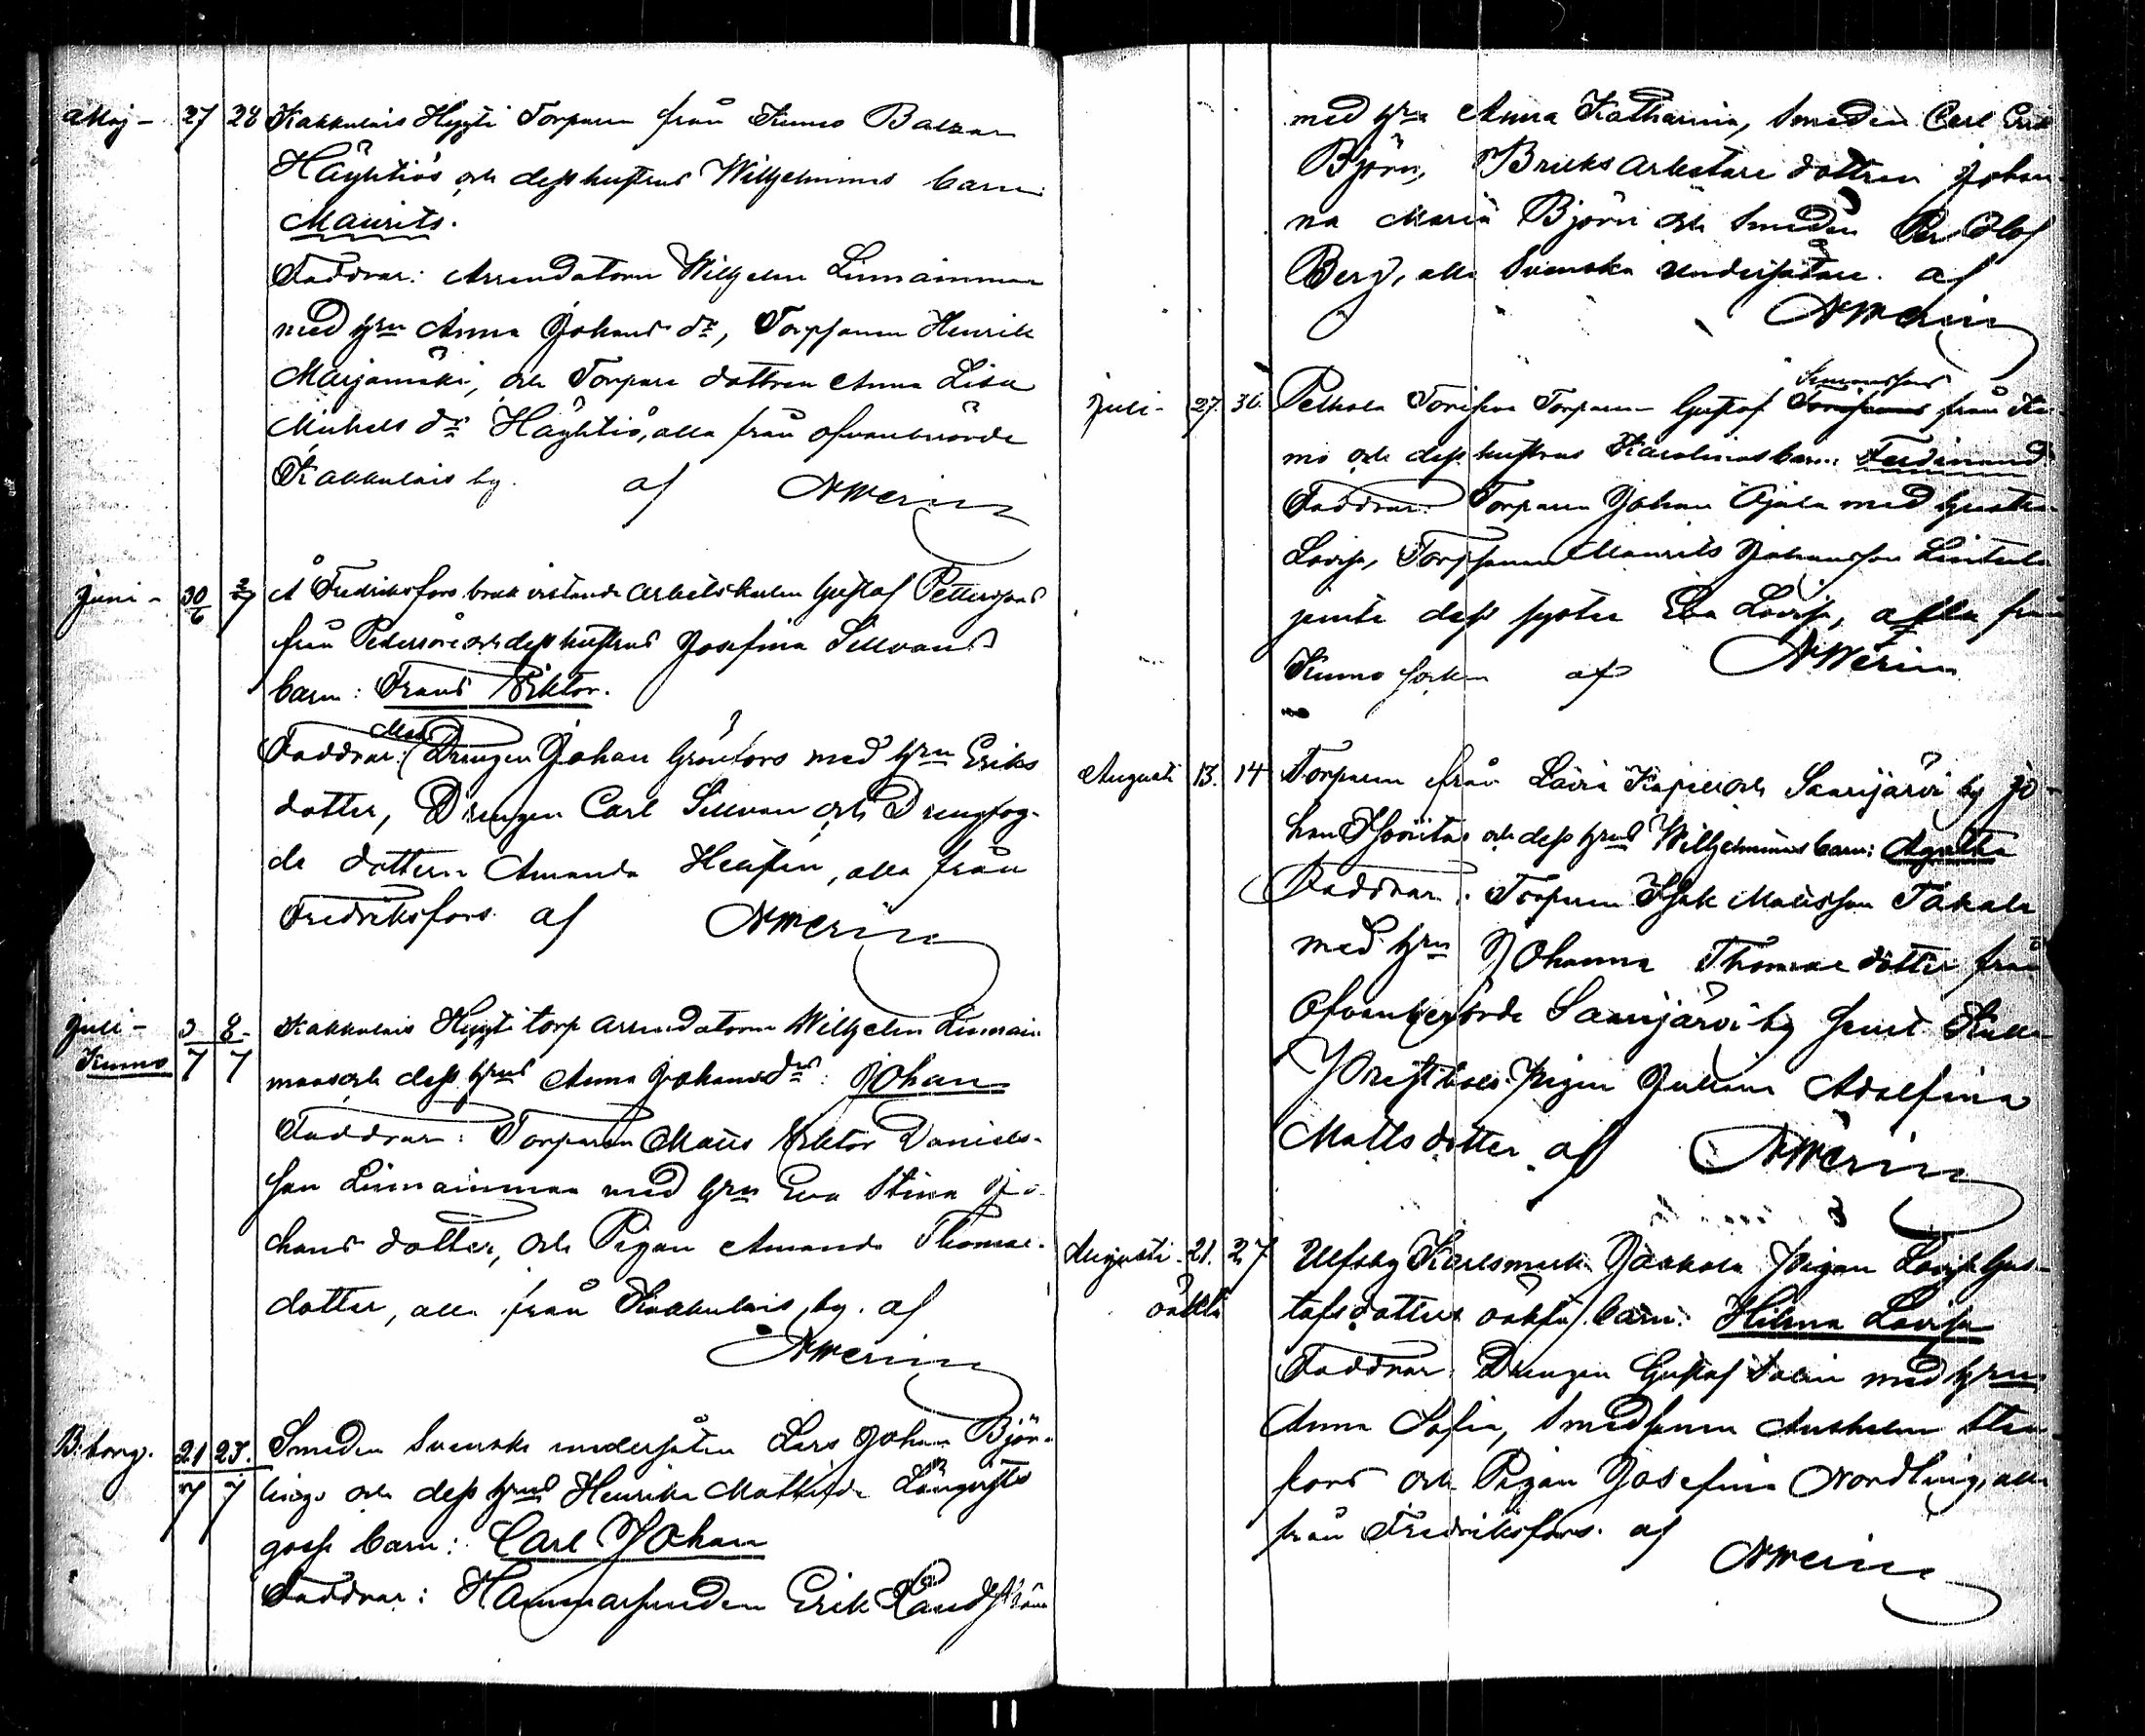 Maj - 27 28 Kakkulais Hyyti Torparen från Kumo Balzar
Häyhtiös och dess hustrus Wilhelminas barn
Maurits.
Faddrar: Arrendatorn Wilhelm Linnainmaa
med hrn Anna Johans dr, Torpsonen Henrik
Marjamäki, och Torpare dottren Anna Lisa
Michels dr Häyhtiö, alla från ofvanberörde
Kakkulais by. af AWerin
Juni - 30/6 2/7 A Fredriksfors bruk vistande Arbetskarlen Gustaf Petterssons
från Pedersöre och dess hustrus Josefina Sillvans
barn: Frans Viktor.
Faddrar: Drengen Johan Grönfors med hrn Eriks
dotter, Drengen Carl Sillvan och Drengfog-
de dottern Amanda, alla från
Fredriksfors. af AWerin
Juli - 3/7 8/7 Kakkulais Hyyti torp arrendatorn Wilhelm Linnain
Kumo
maas och dess hrus Anna Johans drs: Johan
Faddrar: Torparen Matts Viktor Daniels-
son Linnainmaa med hrn Eva Stina Jo-
hans dotter, och Pigan Amanda Thomas-
dotter, alla från Kakkulais by. af
AWerin
B:borg. 21/7 23/7 Smeden Svenske undersåten Lars Johan Björ-
lings och dess hrus Henrika Mathilda
goss barn: Carl Johan
Faddrar: Hammarsmeden Erik Landström
med hrn Anna Katharina, Smeden Carl Erik
Björn, Bruksarbetare dottren Johan-
na Maria Björn och Smeden Per Olof
Berg, alla Svenska undersåtare. af
AWerin
Juli - 27. 30. Peltola Torparen Gustaf Simonssons från Ku-
mo och dess hustrus Karolinas barn: Ferdinand
Faddrar: Torparen Johan Ojala med hustru
Lovisa, Torpsonen Maurits Johansson Lintula
jemte dess syster Eva Lovisa, alla från
Kumo socken af AWerin
Augusti 13. 14 Torparen från Lavia Kapell och Saarijärvi by Jo-
han och dess hrus Wilhelminas barn: Agatha
Faddrar: Torparen Isak Matsson Takala
med hrn Johanna Thomas dotter från
Ofvanberörde Saarijärvi by samt
Pigan Juliana Adolfina
Matts dotter. af AWerin
Augusti - 21. 27 Ulfsby Karlsmark Jaakola Pigan Lovisa Gus-
oäkta tafs dotters oäkta barn: Hilma Lovisa
Faddrar: Drengen Gustaf Salin med hrn
Anna Sofia, Smedsonen Anshelm Sten-
fors och Pigan Josefina Nordling, alla
från Fredriksfors. af
AWerin